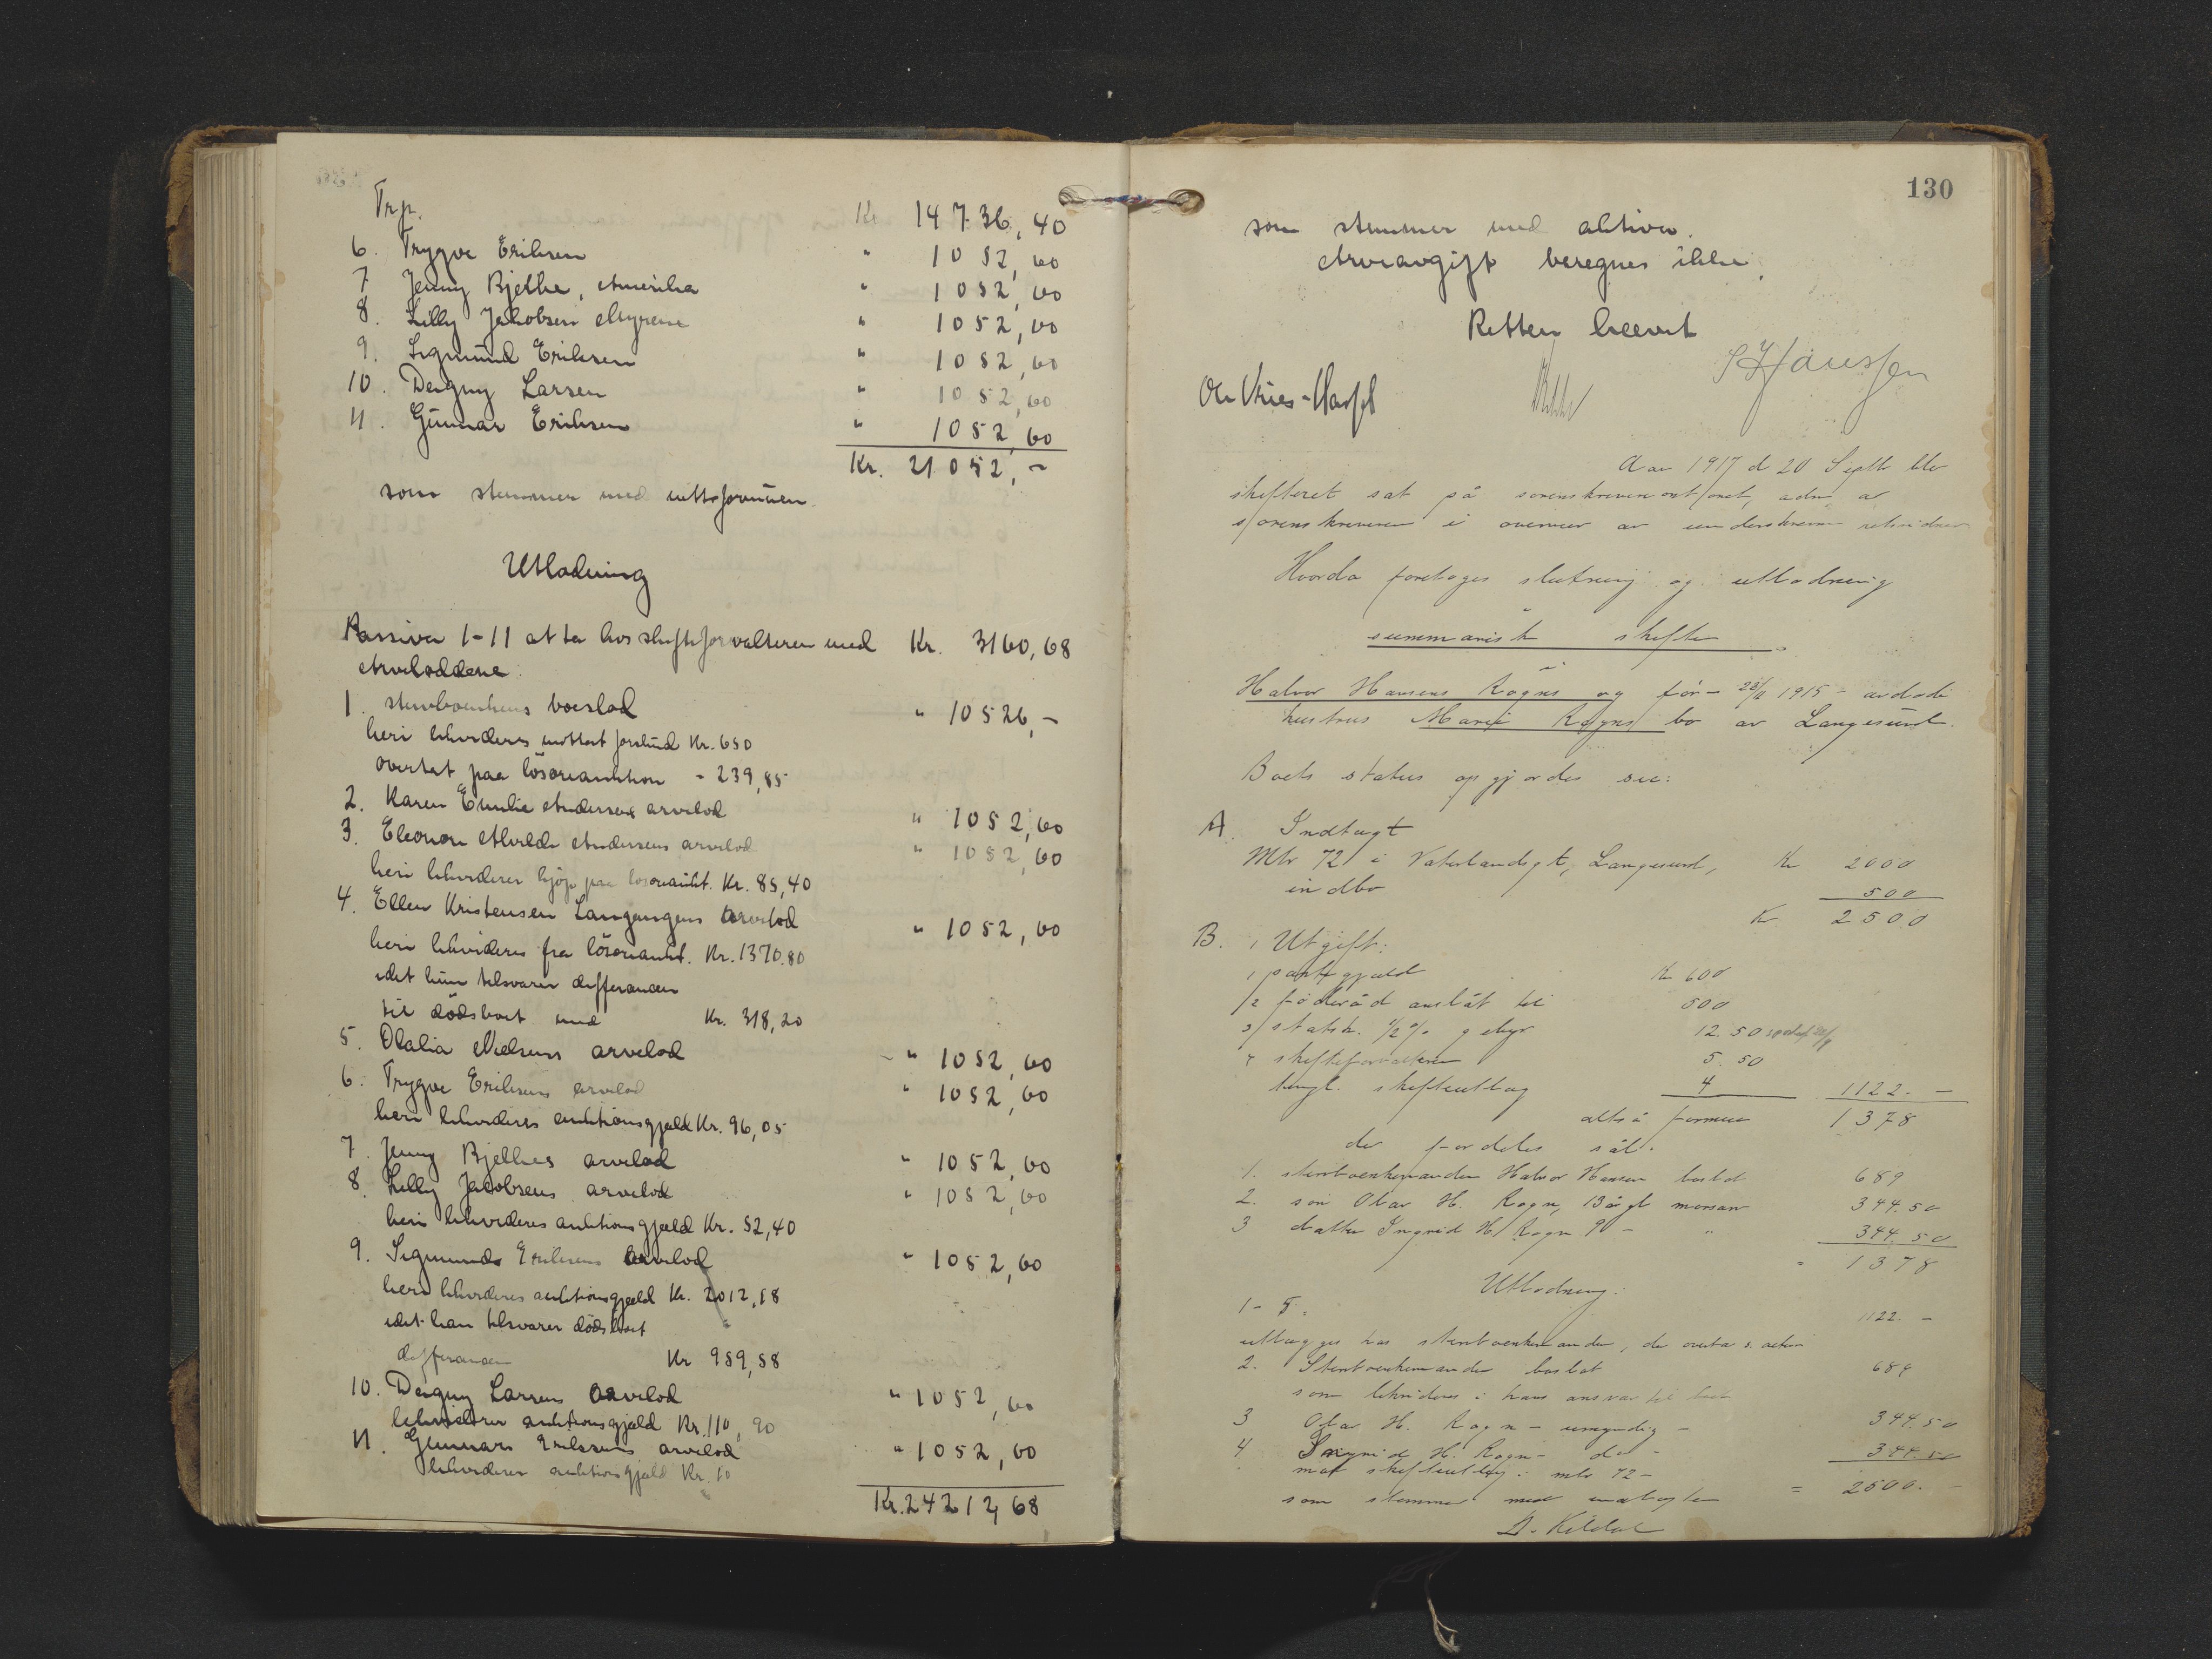 Trp. Kr 14736,40
6. Trygve Eriksen " 1052,60
7 Jenny Bjelke, Amerika " 1052,60
8. Lilly Jakobsen Myrene " 1052,60
9. Sigmund Eriksen " 1052,60
10. Dagny Larsen " 1052,60
11. Gunnar Eriksen " 1052,60
Kr. 21052,-
som stemmer med nettoformuen.
Utlodning
Passiva 1-11 atter hos skifteforvalteren med Kr. 3160,68
Arveloddene:
1. Stervboenkens boeslod " 10526,-
heri likvideres mottat forskud Kr. 650
overtat paa lösöreauktion - 239,85
2. Karen Emilie Andersens arvelod " 1052,60
3. Eleonore Alvilde Andersens arvelod " 1052,60
heri likviderer kjöp paa lösöreaukt. Kr. 85,40
4. Ellen Kristensen Langangens arvelod " 1052,60
heri likvideres fra lösöreaukt. Kr. 1370.80
idet hun tilsvarer differancen
til dödsboet med Kr. 318,20
5. Olalia Nielsens arvelod " 1052,60
6. Trygve Eriksens arvelod " 1052,60
heri likvideres auktionsgjeld Kr. 96,05
7. Jenny Bjelkes arvelod " 1052,60
8. Lilly Jacobsens arvelod " 1052,60
heri likvideres auktionsgjeld Kr. 52,40
9. Sigmunds Eriksens arvelod " 1052,60
heri likvideres auktionsgjeld Kr. 2012,18
idet han tilsvarer dödsboet
differancen Kr 959,58
10. Dagny Larsens arvelod " 1052,60
likviderer auktionsgjeld Kr. 110,90
11. Gunnars Eriksens arvelod " 1052,60
likviderer auktionsgjeld Kr. 10
Kr. 24212,68
130
som stemmer med aktiva.
Arveavgift beregnes ikke.
Retten hævet
S Hanssen
Aar 1917 d 20 Septb blev
skifteret sat på sorenskriverkontoret, adm. av
sorenskriveren i overvær av underskrevne retsvidner
Hvorda foretoges slutning og utlodning
i
summarisk skifte
i
Halvor Hansens Rogns og før - 28/11 1915 - avdøde
hustrus Marie Rogns bo av Langesund.
Boets status opgjordes sål:
A. Indtægt
Mtr 72 i Vaterlandsgt, Langesund, Kr 2000
indbo 500
Kr 2500
B. Utgift:
1 pantegjæld Kr 600
2 föderåd anslåt til 500
3 statsk. 1/2 % gebyr 12.50
4 skifteforvalteren 5.50
tingl. skifteutlæg 4 1122.-
altså formue 1378
der fordeles sål:
1. stervboenkemanden Halvor Hansen boslod 689
2. søn Olav H. Rogn, 13 år gl morsarv 344.50
3 datter Ingrid H Rogn 9 - " 344.50
1378
Utlodning:
1-5: 1122.-
utlægges hos stervboenkemanden, der overtar s. aktiv
2. Stervboenkemandens boslod 689
som likvideres i hans ansvar til boet
3 Olav H. Rogn - umyndig - 344.50
4 Ingrid H. Rogn - do - 344.50
mot skifteutlæg i mtr 72 -
som stemmer med indtægten = 2500.-
A. Kildal